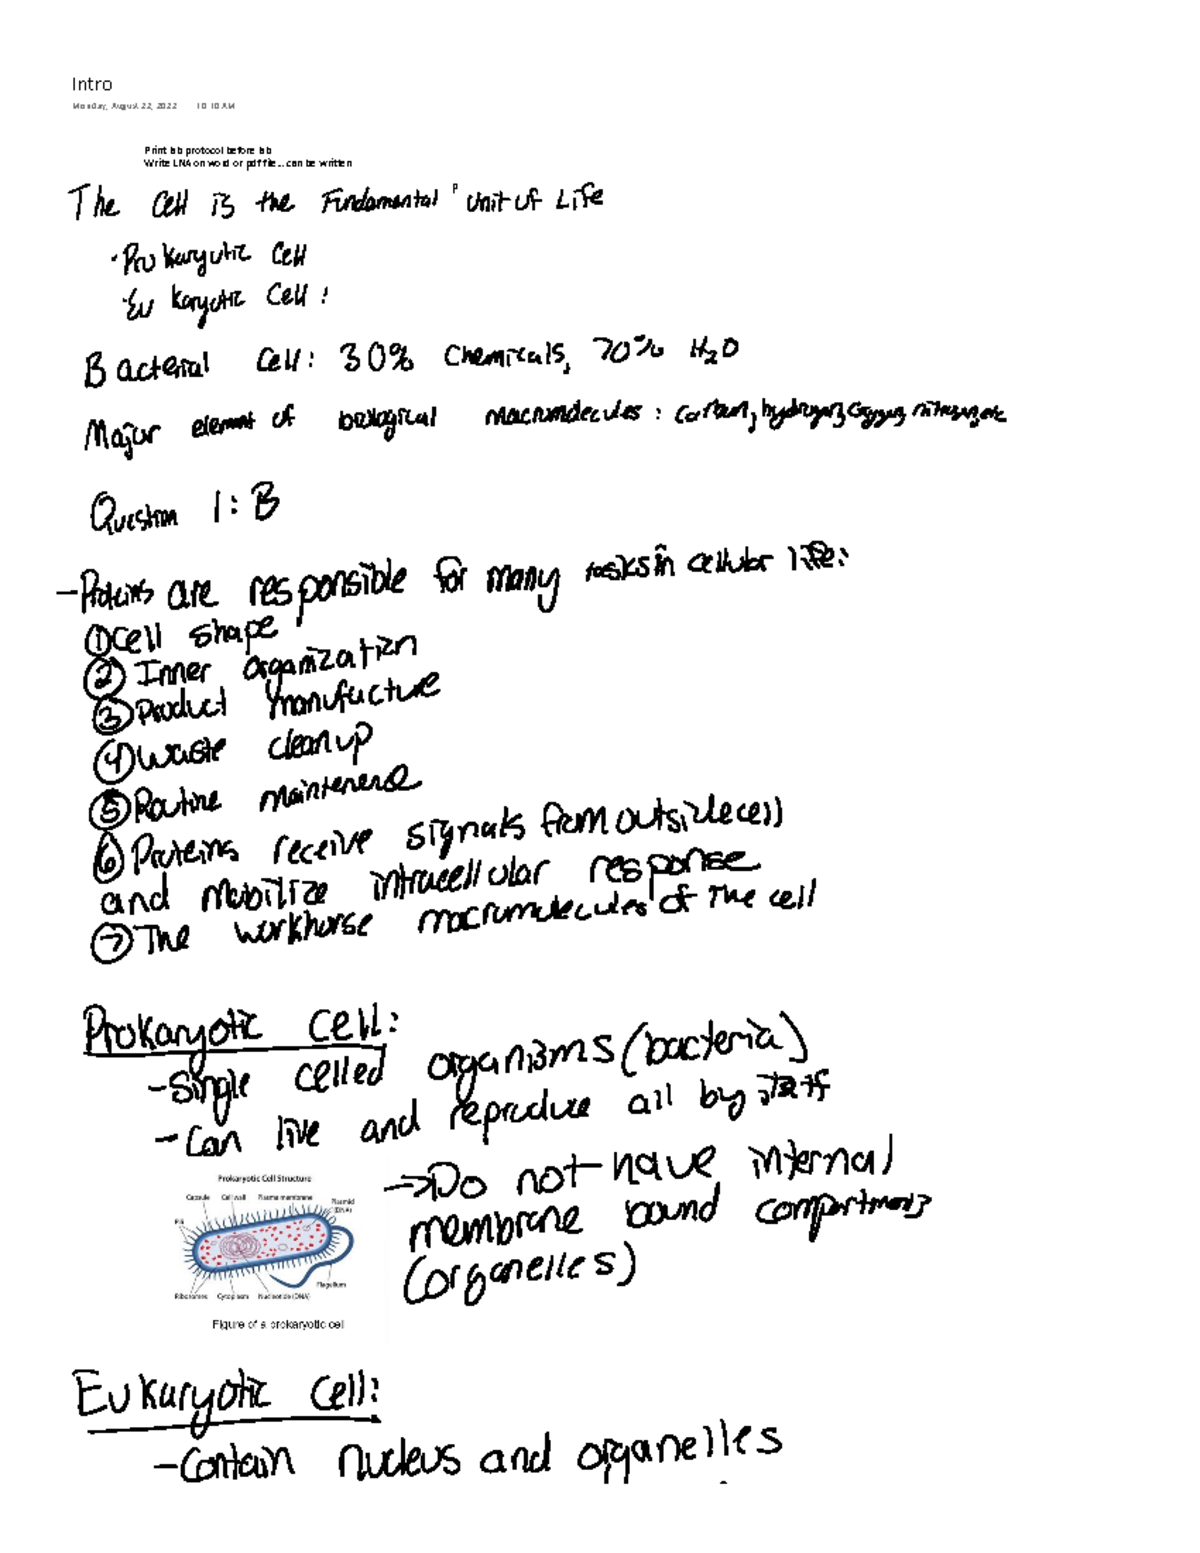 Intro
Monday, August 22, 2022 10:10 AM
Print lab protocol before lab
Write LNA on word or pdf file...can be written
The Cell is the Fundamental Unit of Life
· Prokaryotic Cell
· Eukaryotic Cell:
Bacterial Cell: 30% Chemicals, 70% H2O
Major element of biological macromolecules: Carbon, hydrogen, oxygen, nitrogen, etc
Question 1: B
- Proteins are responsible for many tasks in cellular life:
① Cell shape
② Inner organization
③ Product manufacture
④ Waste cleanup
⑤ Routine maintenence
⑥ Proteins receive signals from outside cell
and mobilize intracellular response
⑦ The workhorse macromolecules of the cell
Prokaryotic Cell:
- Single celled organisms (bacteria)
- Can live and reproduce all by itself
→ Do not have internal
membrane bound compartments
(organelles)
Prokaryotic Cell Structure
Capsule Cell wall Plasma membrane Plasmid
(DNA)
Pili
Flagellum
Ribosomes Cytoplasm Nucleotide (DNA)
Figure of a prokaryotic cell
Eukaryotic Cell:
- Contain nucleus and organelles